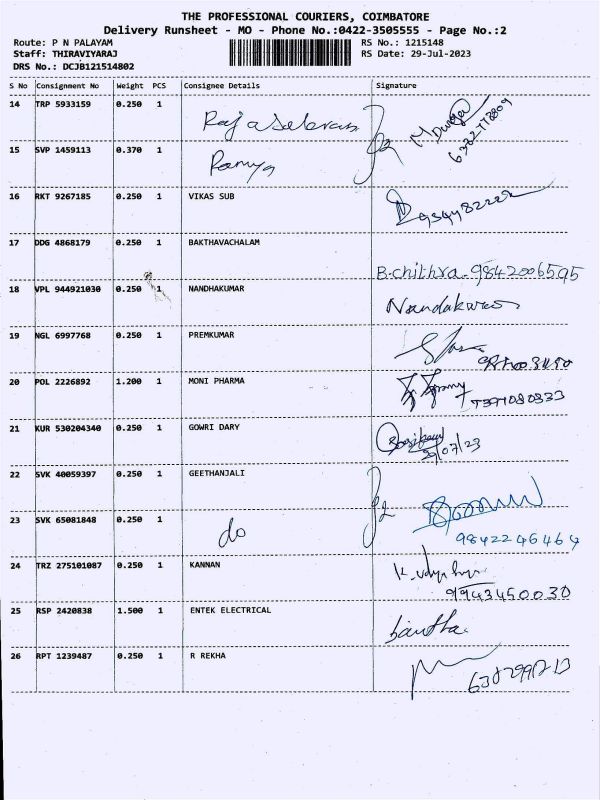 THE PROFESSIONAL COURIERS, COIMBATORE
Delivery Runsheet - MO - Phone No.:0422-3505555 - Page No.:2
Route: P N PALAYAM RS No.: 1215148
Staff: THIRAVIYARAJ RS Date: 29-Jul-2023
DRS No.: DCJB121514802
S No Consignment No Weight PCS Consignee Details Signature
14 TRP 5933159 0.250 1
Rajaselvran M Durga
15 SVP 1459113 0.370 1
Ramya
16 RKT 9267185 0.250 1 VIKAS SUB
17 DDG 4868179 0.250 1 BAKTHAVACHALAM
B.chithra-9842006595
18 VPL 944921030 0.250 1 NANDHAKUMAR
Nandakumar
19 NGL 6997768 0.250 1 PREMKUMAR
20 POL 2226892 1.200 1 MONI PHARMA
21 KUR 530204340 0.250 1 GOWRI DARY
29/07/23
22 SVK 40059397 0.250 1 GEETHANJALI
23 SVK 65081848 0.250 1
do
9842246464
24 TRZ 275101087 0.250 1 KANNAN
9943450030
25 RSP 2420838 1.500 1 ENTEK ELECTRICAL
26 RPT 1239487 0.250 1 R REKHA